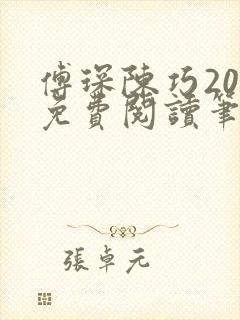 傅琛陳巧20
免費閱讀筆
張卓元